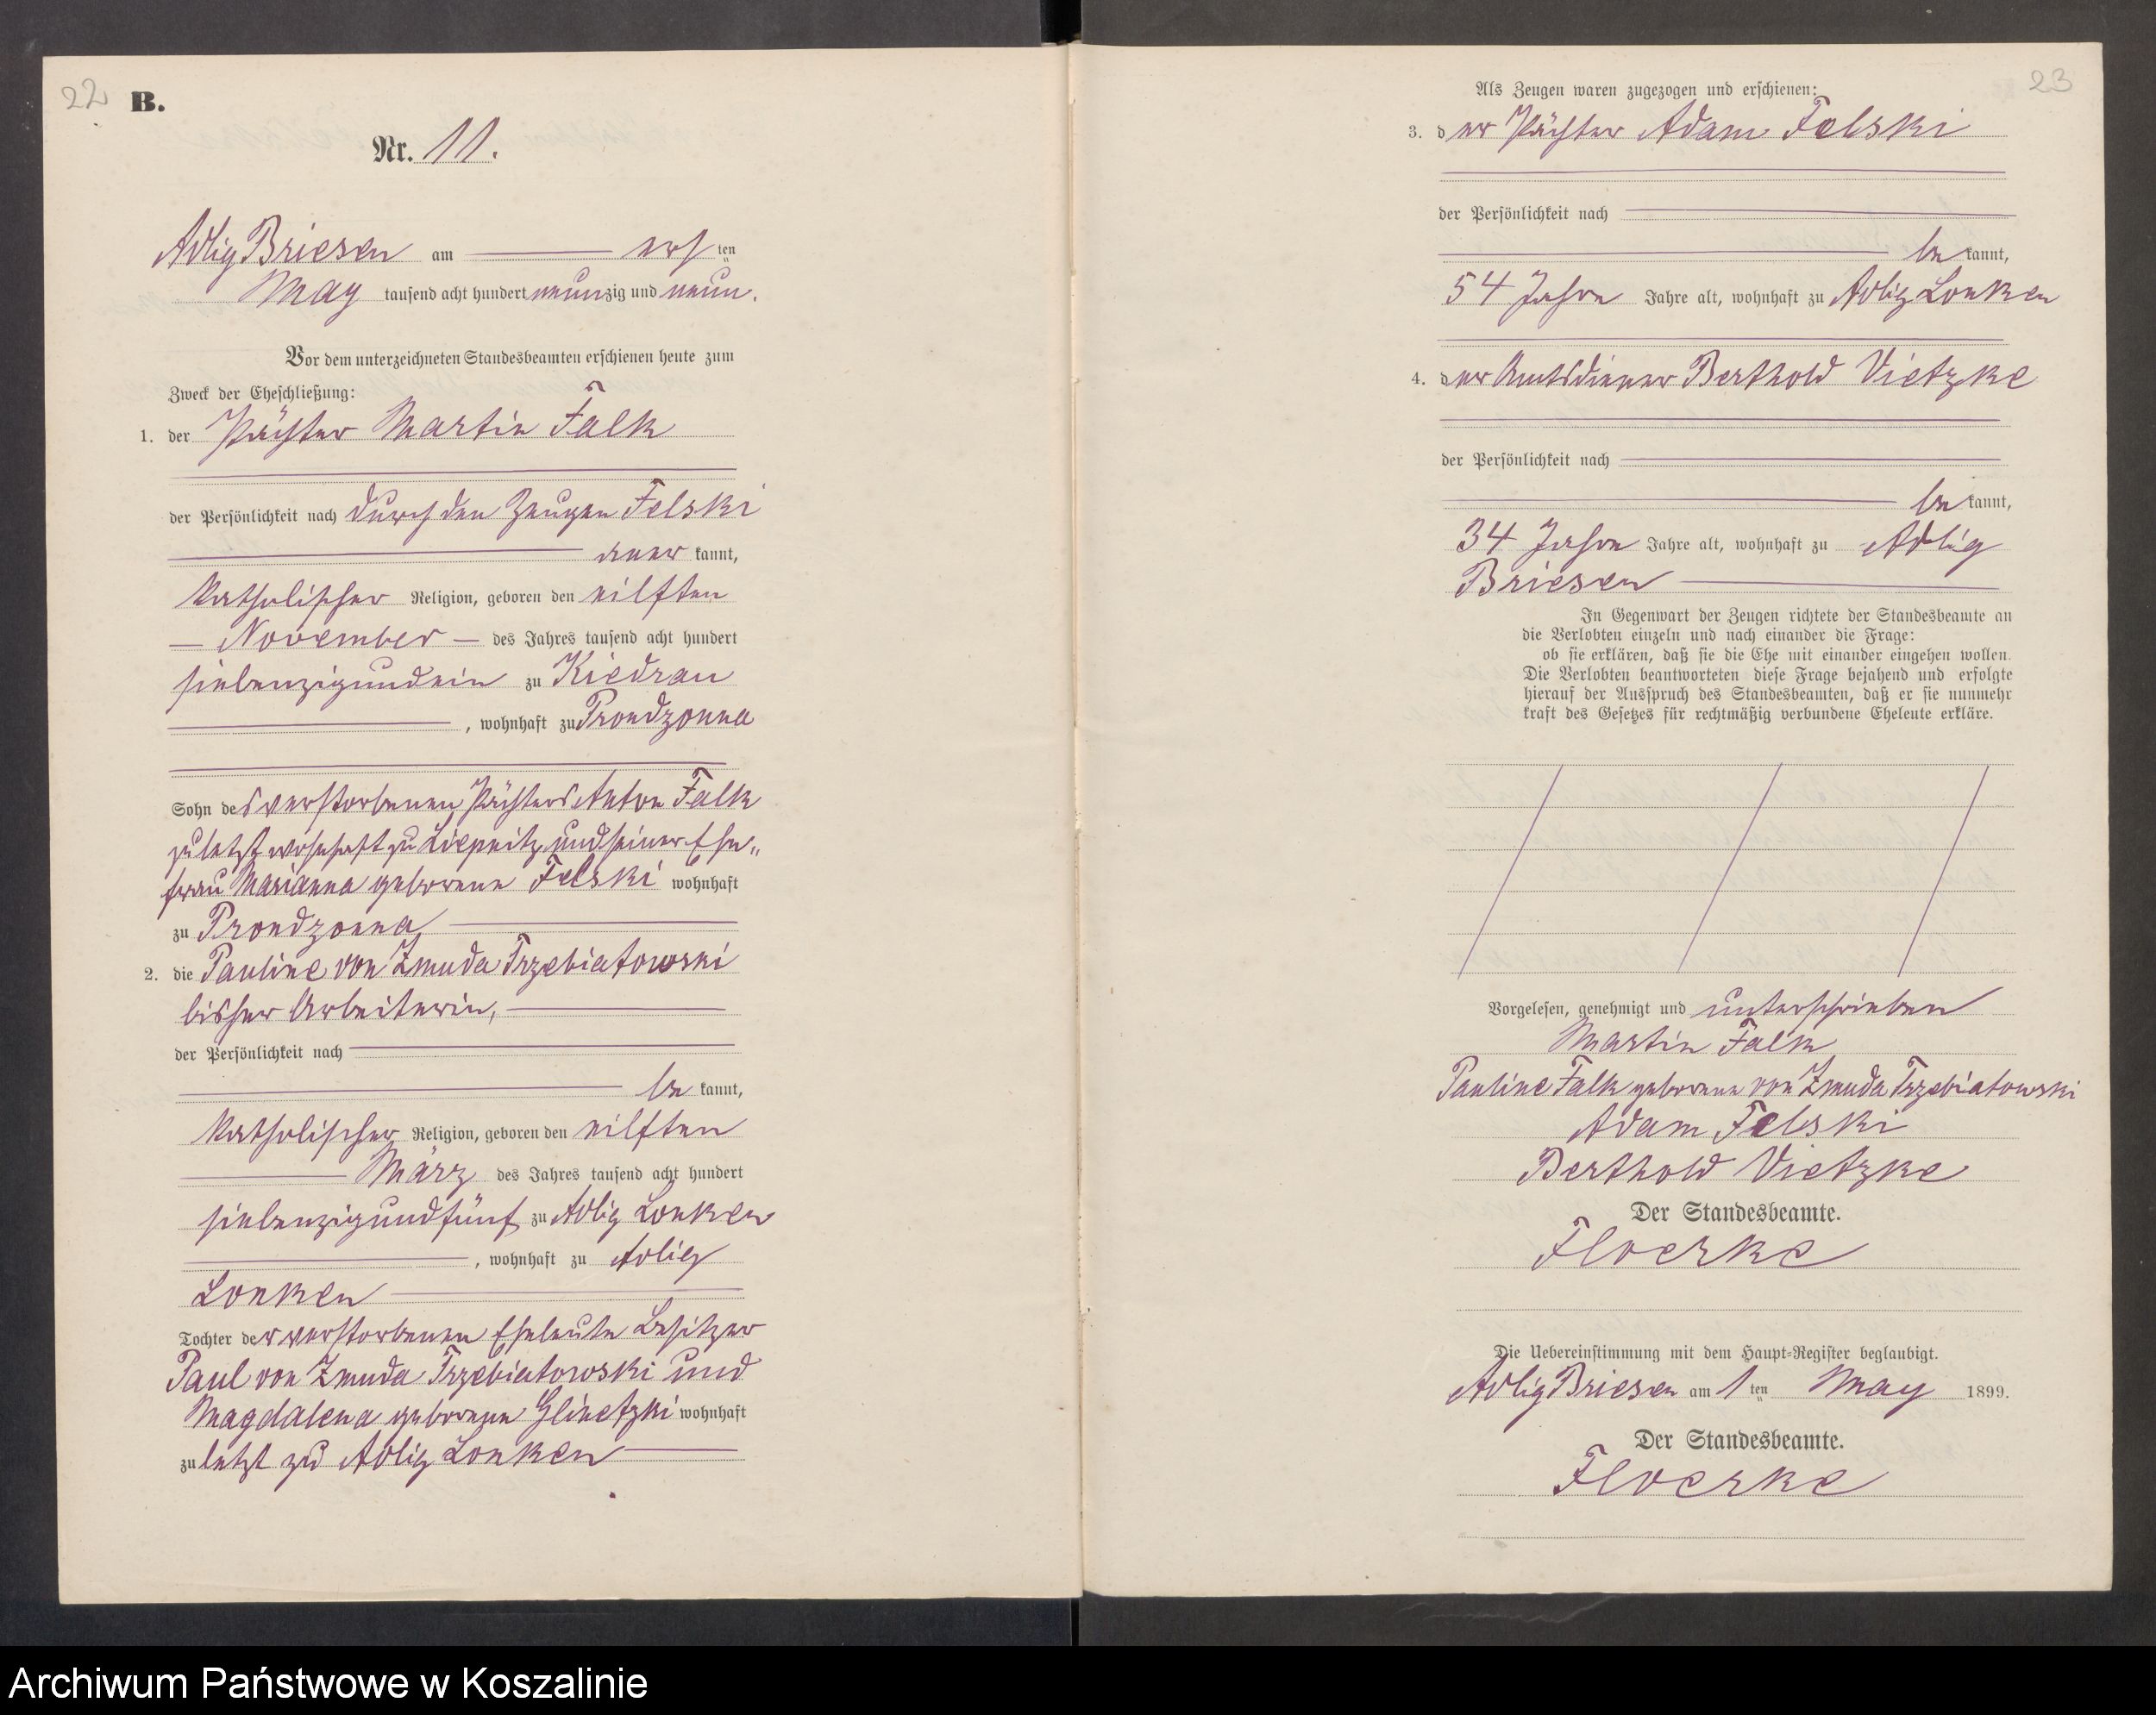 22
B.
Nr. 11.
Adlig Briesen am ersten
May tausend acht hundert neunzig und neun.
Vor dem unterzeichneten Standesbeamten erschienen heute zum
Zweck der Eheschließung:
1. der Pächter Martin Falk
der Persönlichkeit nach durch den Zeugen Felski
aner kannt,
katholischer Religion, geboren den eilften
November des Jahres tausend acht hundert
siebenzigundein zu Kiedrau
, wohnhaft zu Prondzonna
Sohn des verstorbenen Pächters Anton Falk
zuletzt wohnhaft zu Liepnitz und seiner Ehe„
frau Marianna geborene Felski wohnhaft
zu Prondzonna
2. die Pauline von Zmuda Trzebiatowski
bisher Arbeiterin,
der Persönlichkeit nach
be kannt,
katholischer Religion, geboren den eilften
März des Jahres tausend acht hundert
siebenzigundfünf zu Adlig Lonken
, wohnhaft zu Adlig
Lonken
Tochter der verstorbenen Eheleute Besitzer
Paul von Zmuda Trzebiatowski und
Magdalena geborene Glinetzki wohnhaft
zu letzt zu Adlig Lonken
23
Als Zeugen waren zugezogen und erschienen:
3. der Pächter Adam Felski
der Persönlichkeit nach
be kannt,
54 Jahre Jahre alt, wohnhaft zu Adlig Lonken
4. der Amtsdiener Berthold Vietzke
der Persönlichkeit nach
be kannt,
34 Jahre Jahre alt, wohnhaft zu Adlig
Briesen
In Gegenwart der Zeugen richtete der Standesbeamte an
die Verlobten einzeln und nach einander die Frage:
ob sie erklären, daß sie die Ehe mit einander eingehen wollen.
Die Verlobten beantworteten diese Frage bejahend und erfolgte
hierauf der Ausspruch des Standesbeamten, daß er sie nunmehr
kraft des Gesetzes für rechtmäßig verbundene Eheleute erkläre.
Vorgelesen, genehmigt und unterschrieben
Martin Falk
Pauline Falk geborene von Zmuda Trzebiatowski
Adam Felski
Berthold Vietzke
Der Standesbeamte.
Floerke
Die Uebereinstimmung mit dem Haupt-Register beglaubigt.
Adlig Briesen am 1 ten May 1899.
Der Standesbeamte.
Floerke
Archiwum Państwowe w Koszalinie